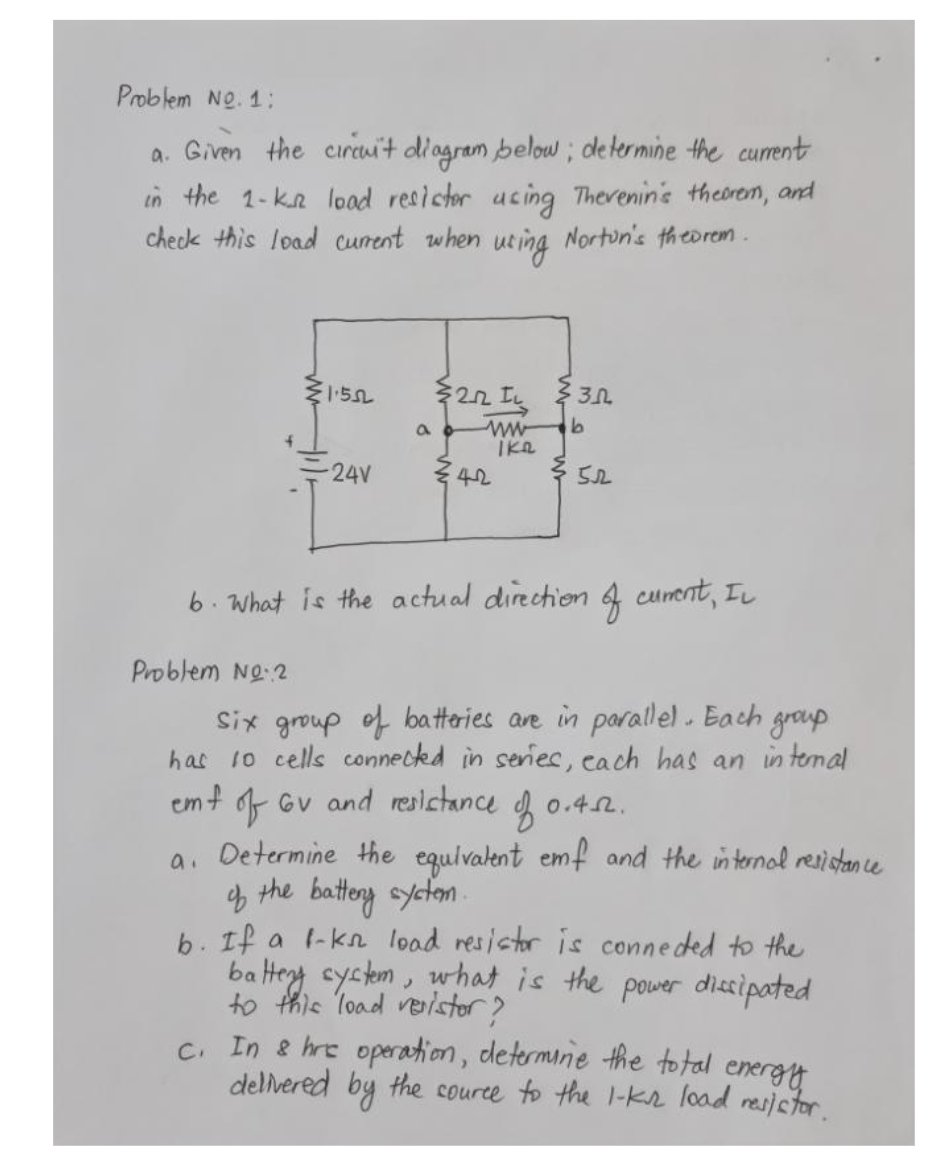 Problem No. 1:
a. Given the circuit diagram below; determine the current
in the 1-kΩ load resistor using Thevenin's theorem, and
check this load current when using Norton's theorem.
1.5Ω
2Ω IL
3Ω
a
b
1KΩ
+
24V
-
4Ω
5Ω
b. What is the actual direction of current, IL
Problem No. 2
Six group of batteries are in parallel. Each group
has 10 cells connected in series, each has an internal
emf of 6V and resistance of 0.4Ω.
a. Determine the equivalent emf and the internal resistance
of the battery system.
b. If a 1-kΩ load resistor is connected to the
battery system, what is the power dissipated
to this load resistor?
c. In 8 hrs operation, determine the total energy
delivered by the source to the 1-kΩ load resistor.